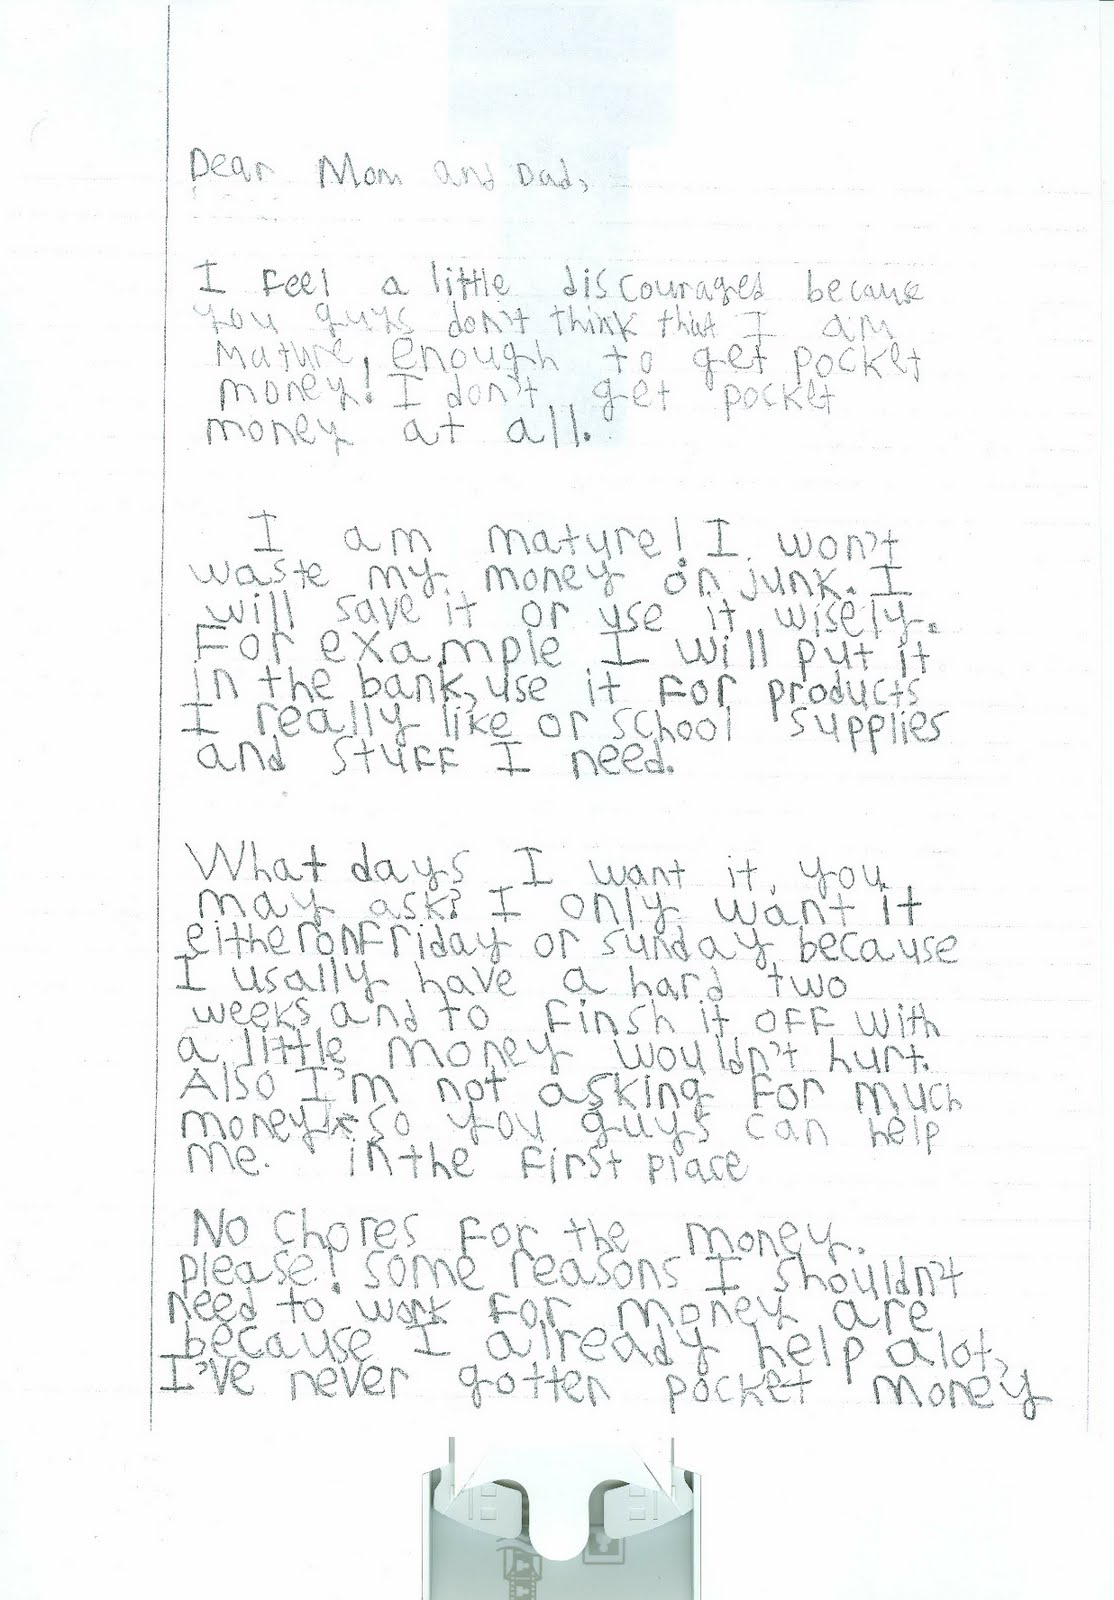 Dear Mom and Dad,
I feel a little discouraged because
you guys don't think that I am
mature enough to get pocket
money! I don't get pocket
money at all.
I am mature! I won't
waste my money on junk. I
will save it or use it wisely.
For example I will put it
in the bank, use it for products
I really like or school supplies
and stuff I need.
What days I want it, you
may ask? I only want it
either on Friday or sunday because
I usally have a hard two
weeks and to finsh it off with
a little money wouldn't hurt.
Also I'm not asking for much
money so you guys can help
me. in the first place
No chores for the money.
please! some reasons I shouldn't
need to work for money are
because I already help alot,
I've never gotten pocket money